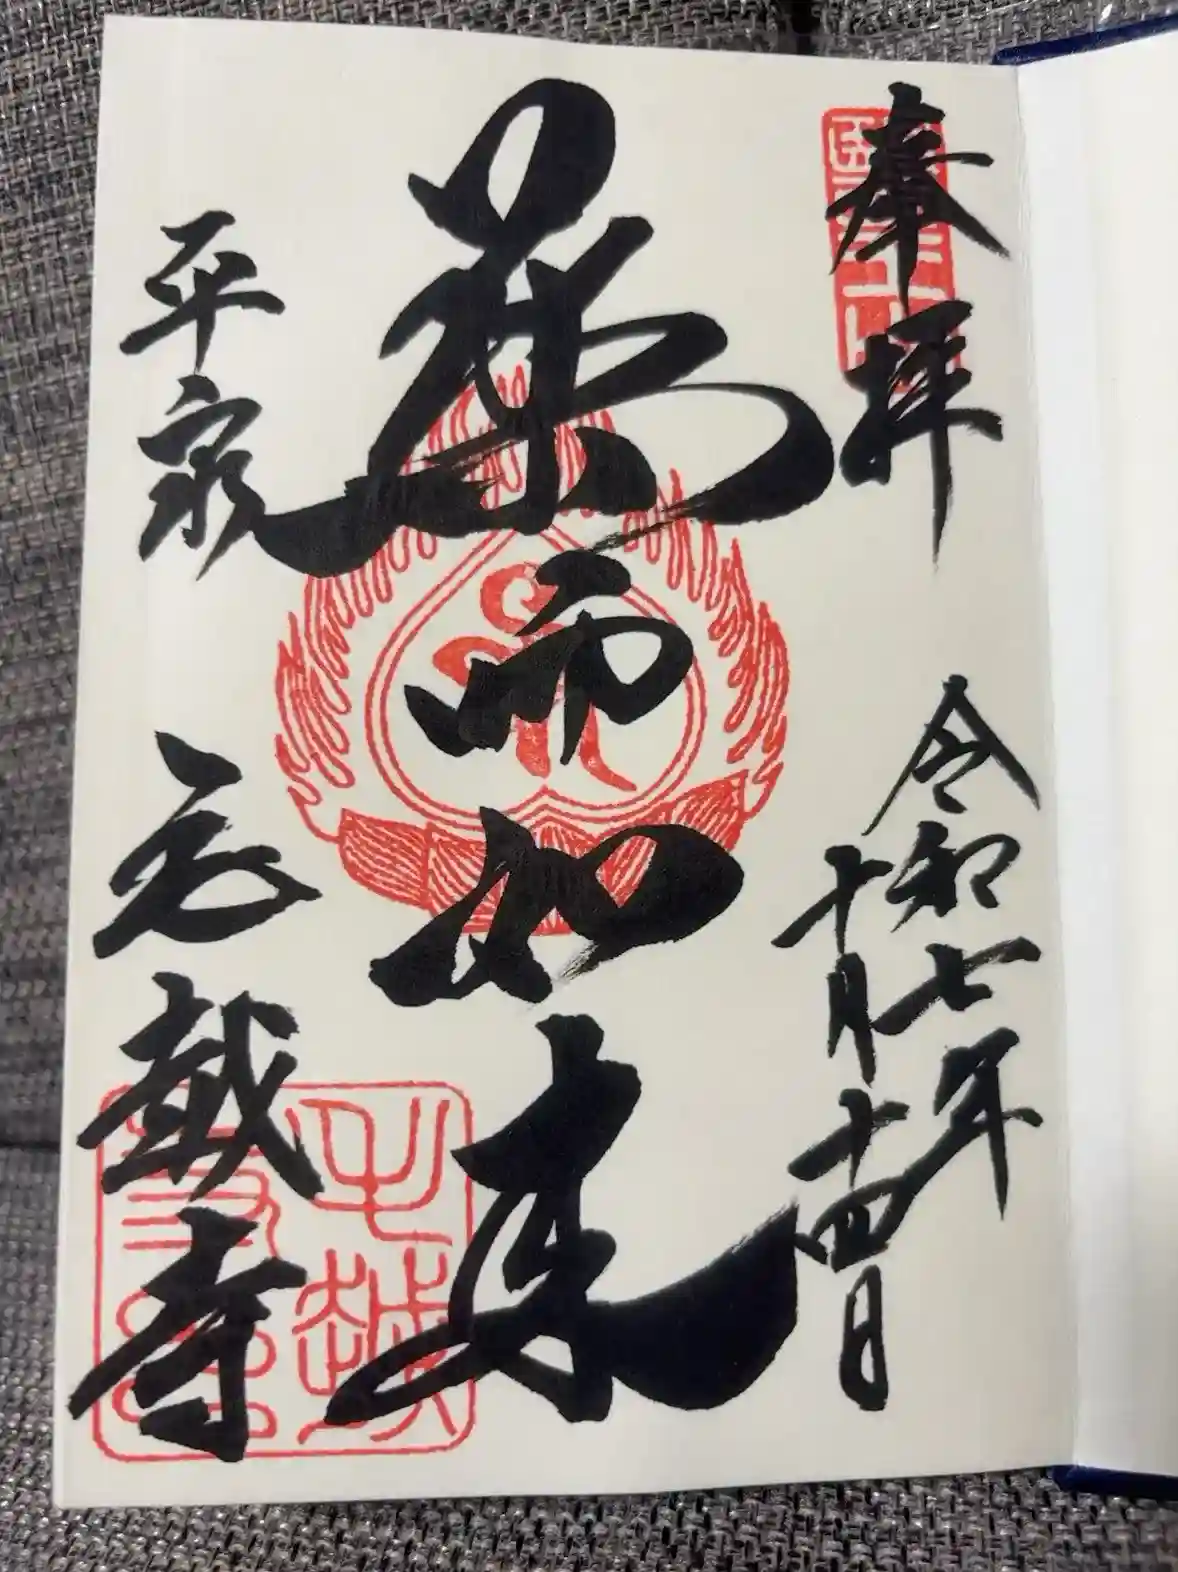 奉拝
令和七年
十月十四日
薬師如来
平泉
毛越寺
毛越
寺印